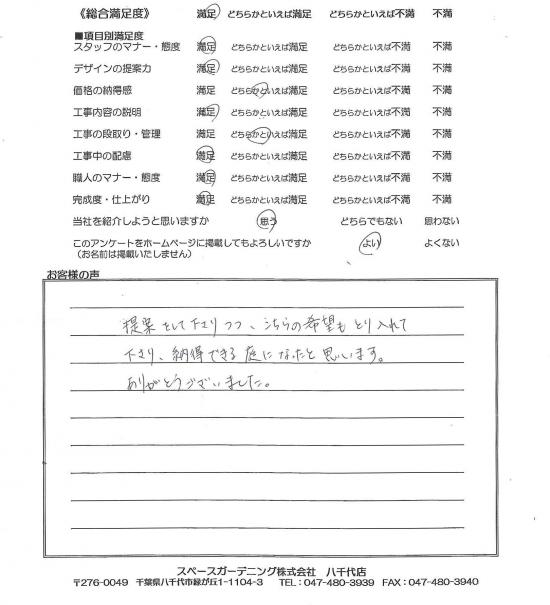 《総合満足度》 満足 どちらかといえば満足 どちらかといえば不満 不満
■項目別満足度
スタッフのマナー・態度 満足 どちらかといえば満足 どちらかといえば不満 不満
デザインの提案力 満足 どちらかといえば満足 どちらかといえば不満 不満
価格の納得感 満足 どちらかといえば満足 どちらかといえば不満 不満
工事内容の説明 満足 どちらかといえば満足 どちらかといえば不満 不満
工事の段取り・管理 満足 どちらかといえば満足 どちらかといえば不満 不満
工事中の配慮 満足 どちらかといえば満足 どちらかといえば不満 不満
職人のマナー・態度 満足 どちらかといえば満足 どちらかといえば不満 不満
完成度・仕上がり 満足 どちらかといえば満足 どちらかといえば不満 不満
当社を紹介しようと思いますか 思う どちらでもない 思わない
このアンケートをホームページに掲載してもよろしいですか よい よくない
（お名前は掲載いたしません）
お客様の声
提案をして下さりつつ、こちらの希望もとり入れて
下さり、納得できる庭になったと思います。
ありがとうございました。
スペースガーデニング株式会社 八千代店
〒276-0049 千葉県八千代市緑が丘1-1104-3 TEL：047-480-3939 FAX：047-480-3940